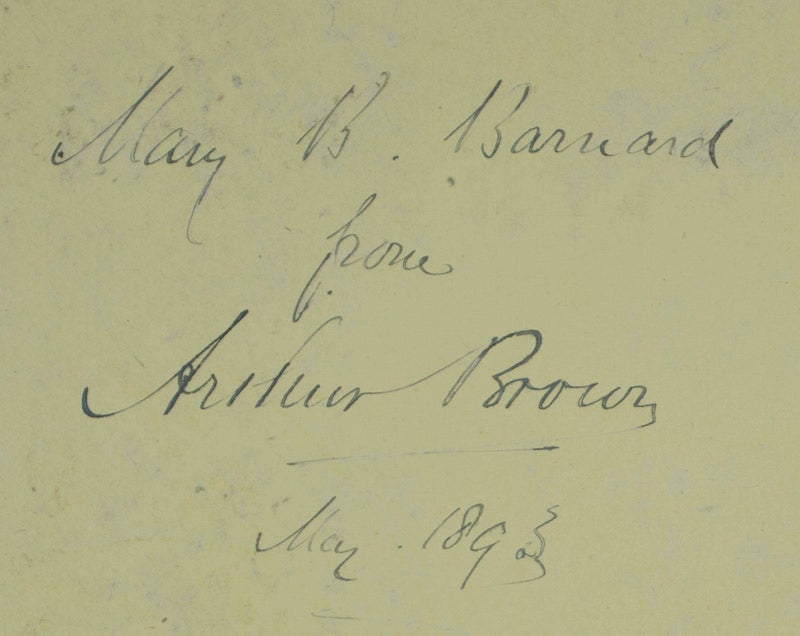 Mary B. Barnard
from
Arthur Brown
May. 1893